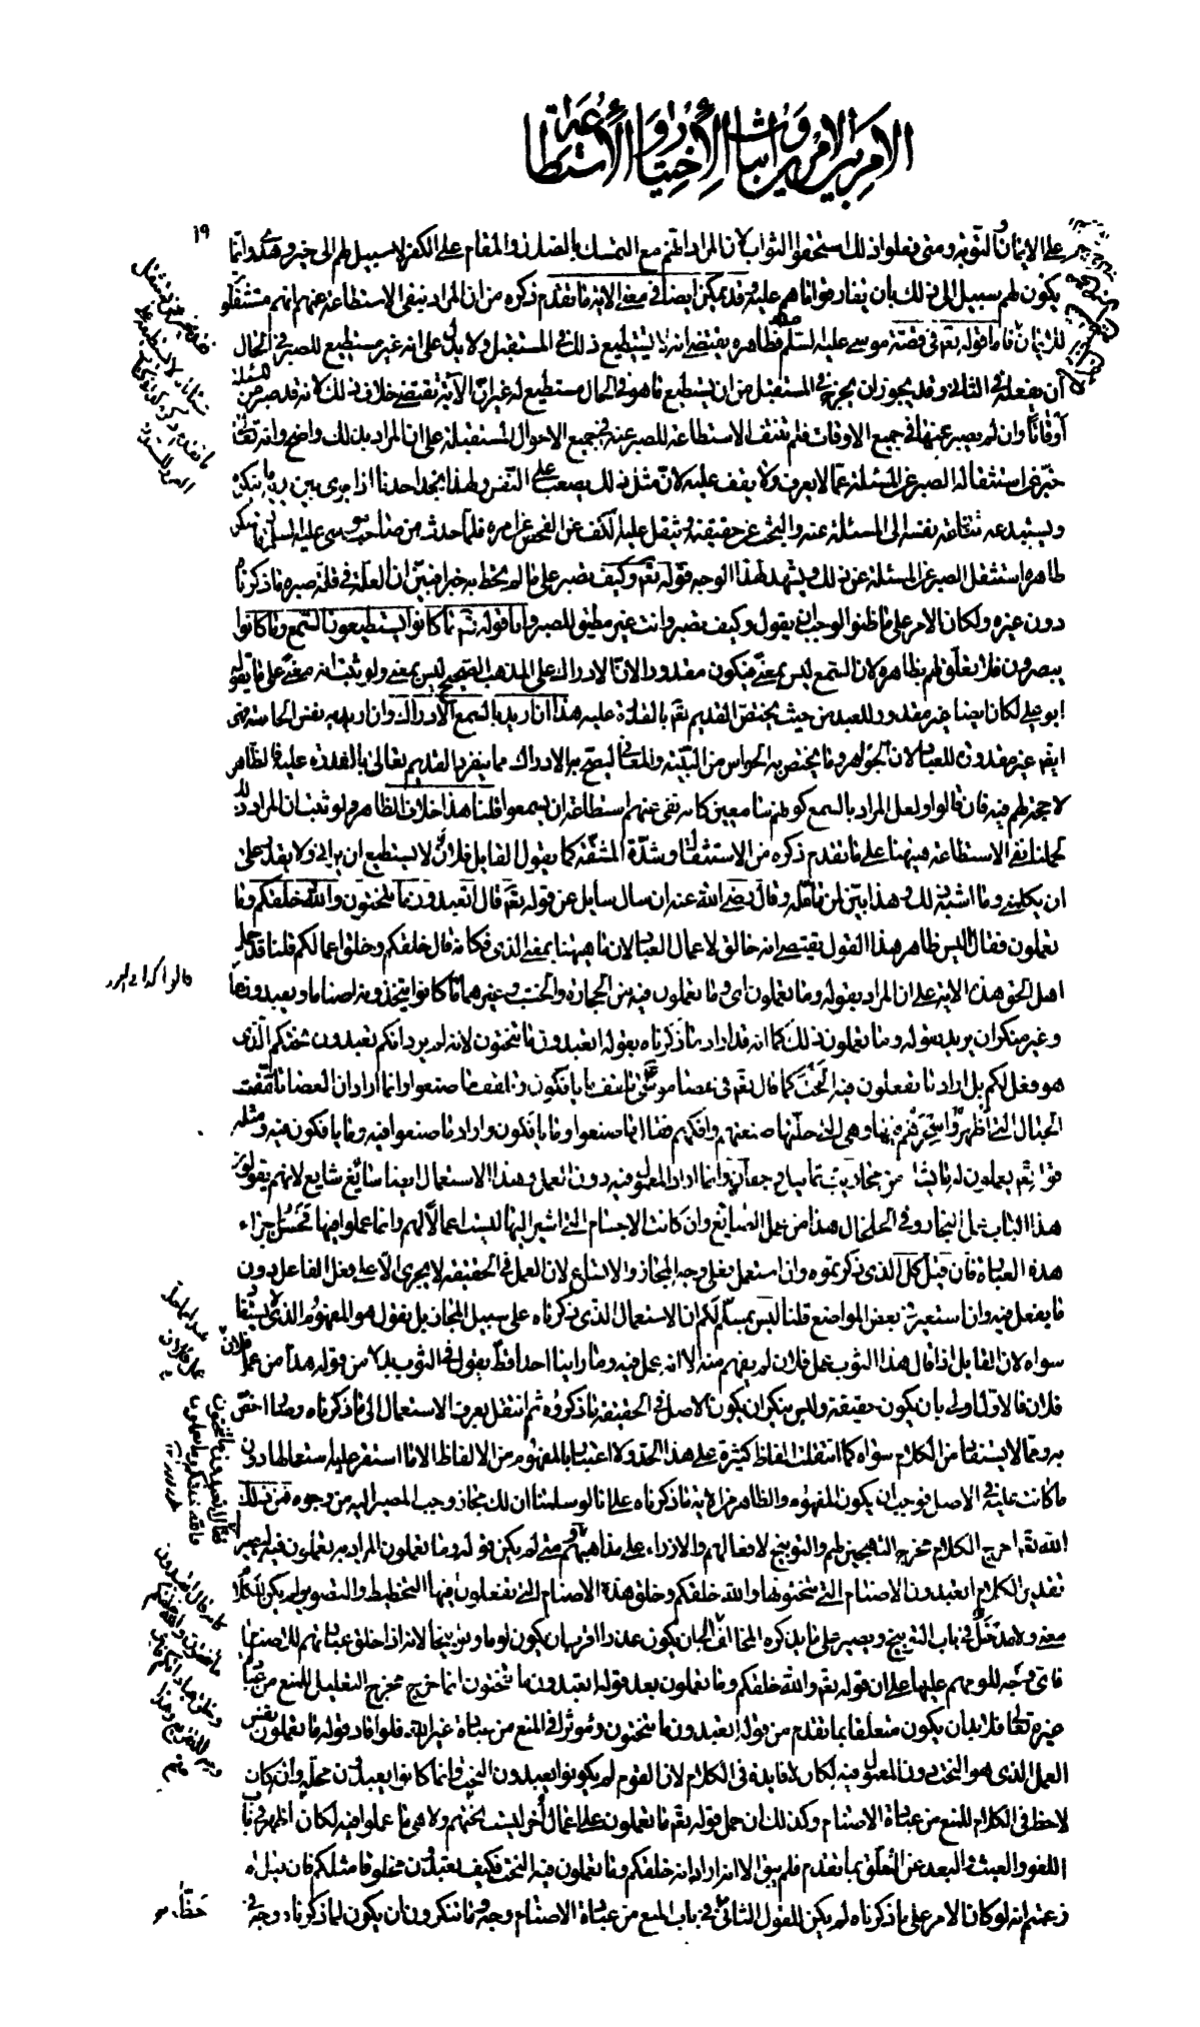 الامر بين الامرين واثبات الاختيار والاستطاعة
١٩
على الايمان والتوبة ومتى فعلوا ذلك استحقوا الثواب لان المراد انهم مع التمسك بالضلال والمقام على الكفر لا سبيل لهم الى خير وهدى وانما
يكون لهم سبيل الى ذلك بان يفارقوا ما هم عليه وقد يمكن ايضا في معنى الاية ما تقدم ذكره من ان المراد بنفى الاستطاعة عنهم انهم مستثقلون
للايمان فاما قوله تعم في قصة موسى عليه السلم فظاهره يقتضى انه لا يستطيع ذلك في المستقبل ولا يدل على انه غير مستطيع للصبر في الحال
ان يفعله في الثانى وقد يجوز ان يخرج في المستقبل من ان يستطيع ما هو في الحال مستطيع له غير ان الاية تقتضى خلاف ذلك لانه قد صبر عن المسئلة
اوقاتا وان لم يصبر عنها في جميع الاوقات فلم تنتف الاستطاعة للصبر عنه في جميع الاحوال المستقبلة على ان المراد بذلك واضح وانه تعالى
خبر عن استثقاله الصبر عن المسئلة عما لا يعرف ولا يقف عليه لان مثل ذلك يصعب على النفس ولهذا يجد احدنا اذا جرى بين يديه ما ينكره
ويستبدعه تنازعه نفسه الى المسئلة عنه والبحث عن حقيقته ويثقل عليه الكف عن الفحص عن امره فلما حدث من صاحب موسى عليه السلم ما يستنكر
ظاهره استثقل الصبر عن المسئلة عن ذلك ويشهد لهذا الوجه قوله تعم وكيف تصبر على ما لم تحط به خبرا فبين ان العلة في قلة صبره ما ذكرناه
دون غيره ولو كان الامر على ما ظنوا لوجب ان يقول وكيف تصبر وانت غير مطيق للصبر واما قوله تعم ما كانوا يستطيعون السمع وما كانوا
يبصرون فلا تعلق لهم بظاهره لان السمع ليس بمعنى فيكون مقدورا لان الادراك على المذهب الصحيح ليس بمعنى ولو ثبت انه معنى على ما يقوله
ابو على لكان ايضا غير مقدور للعبد من حيث يختص القديم تعم بالقدرة عليه هذا ان اريد بالسمع الادراك وان اريد به نفس الحاسة فهى
ايضم غير مقدورة للعباد لان الجواهر وما يختص به الحواس من البنية والمعانى ليصح بها الادراك مما ينفرد القديم تعالى بالقدرة عليه فالظاهر
لا حجة لهم فيه فان قالوا ولعل المراد بالسمع كونهم سامعين كانه نفى عنهم استطاعة ان يسمعوا قلنا هذا خلاف الظاهر ولو ثبت ان المراد ذلك
لحملنا نفى الاستطاعة ههنا على ما تقدم ذكره من الاستثقال وشدة المشقة كما يقول القايل فلان لا يستطيع ان يرانى ولا يقدر على
ان يكلمنى وما اشبه ذلك وهذا بين لمن تامله وقال رضى الله عنه ان سال سايل عن قوله تعم قال اتعبدون ما تنحتون والله خلقكم وما
تعملون فقال اليس ظاهر هذا القول يقتضى انه خالق لاعمال العباد لان ما ههنا بمعنى الذى فكانه قال خلقكم وخلق اعمالكم قلنا قد حمل
اهل الحق هذه الاية على ان المراد بقوله وما تعملون اى وما تعملون فيه من الحجارة والخشب وغيرهما مما كانوا يتخذونه اصناما ويعبدونها
وغير منكر ان يريد بقوله وما تعملون ذلك كما انه قد اراد ما ذكرناه بقوله اتعبدون ما تنحتون لانه لم يرد انكم تعبدون نحتكم الذى
هو فعل لكم بل اراد ما تفعلون فيه النحت كما قال تعم في عصا موسى تلقف ما يافكون وتلقف ما صنعوا وانما اراد ان العصا تلقفت
الحبال التى اظهروا سحرهم فيها وهى التى حلتها صنعتهم وافكهم فقال ما صنعوا وما يافكون واراد ما صنعوا فيه وما يافكون فيه ومثله
قوله تعم يعملون له ما يشاء من محاريب وتماثيل وجفان وانما اراد المعمول فيه دون العمل وهذا الاستعمال ايضا سائغ شايع لانهم يقولون
هذا الباب عمل النجار وفي الخلخال هذا من عمل الصايغ وان كانت الاجسام التى اشير اليها ليست اعمالا لهم وانما عملوا فيها فحسن اجراء
هذه العبارة فان قيل كل الذى ذكرتموه وان استعمل فعلى وجه المجاز والاتساع لان العمل في الحقيقة لا يجرى الا على فعل الفاعل دون
ما يفعل فيه وان استعير في بعض المواضع قلنا ليس بمسلم لكم ان الاستعمال الذى ذكرناه على سبيل المجاز بل نقول هو المفهوم الذى لا يستفاد
سواه لان القايل اذا قال هذا الثوب عمل فلان لم يفهم منه الا انه عمل فيه وما راينا احدا قط يقول في الثوب بدلا من قوله هذا من عمل فلان
فلان فالاولى بان يكون حقيقة وليس ينكر ان يكون الاصل في الحقيقة ما ذكروه ثم انتقل بعرف الاستعمال الى ما ذكرناه وصار اخص
به ومما لا يستفاد من الكلام سواه كما انتقلت الفاظ كثيرة على هذا الحد ولا اعتبار بالمفهوم من الالفاظ الا ما استقر عليه استعمالها دون
ما كانت عليه في الاصل فوجب ان يكون المفهوم والظاهر من الاية ما ذكرناه على انا لو سلمنا ان ذلك مجاز وجب المصير اليه من وجوه فمن ذلك
الله تعم اخرج الكلام مخرج التهجين لهم والتوبيخ لافعالهم والازراء على مذاهبهم ومتى لم يكن قوله وما تعملون المراد به تعملون فيه ليصير
تقدير الكلام اتعبدون الاصنام التى تنحتونها والله خلقكم وخلق هذه الاصنام التى تفعلون فيها التخطيط والتصوير لم يكن للكلام
معنى ولا مدخل في باب التوبيخ ويصير على ما يذكره المخالف الى ان يكون عذرا اقرب من ان يكون لوما وتوبيخا لانه اذا خلق عبادتهم للاصنام
فاى وجه للومهم عليها على ان قوله تعم والله خلقكم وما تعملون بعد قوله اتعبدون ما تنحتون انما خرج مخرج التعليل للمنع من عبادة
غيره تعالى فلا بد ان يكون متعلقا بما تقدم من قوله اتعبدون ما تنحتون ومؤثرا في المنع من عبادة غير الله فلو افاد قوله ما تعملون نفس
العمل الذى هو النحت دون المعمول فيه لكان لا فايدة في الكلام لان القوم لم يكونوا يعبدون النحت وانما كانوا يعبدون محله وان كان
لا حظ في الكلام للمنع من عبادة الاصنام وكذلك ان حمل قوله تعم ما تعملون على اعمال اخر ليست نحتهم ولا هى ما عملوا فيه لكان اظهر في باب
اللغو والعبث والبعد عن التعلق بما تقدم فلم يبق الا انه اراد انه خلقكم وما تعملون فيه النحت فكيف تعبدون مخلوقا مثلكم فان قيل لم
زعمتم انه لو كان الامر على ما ذكرناه لم يكن للقول الثانى في باب المنع من عبادة الاصنام وجه وما تنكرون ان يكون لما ذكرناه وجه في